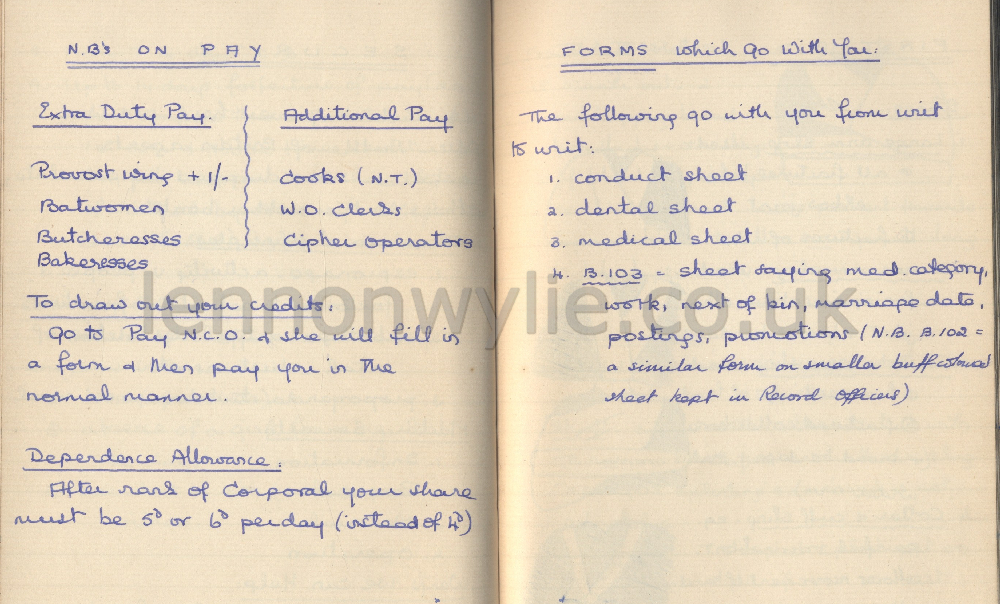 N.B's ON PAY
Extra Duty Pay.
Provost wing + 1/-
Batwomen
Butcheresses
Bakeresses
Additional Pay
Cooks (N.T.)
W.O. Clerks
Cipher operators
To draw out your credits:
Go to Pay N.C.O. & she will fill in
a form & then pay you in the
normal manner.
Dependence Allowance.
After rank of Corporal your share
must be 5d or 6d per day (instead of 4d)
FORMS which go with You.
The following go with you from unit
to unit:
1. conduct sheet
2. dental sheet
3. medical sheet
4. B.103 = sheet saying med. category,
work, next of kin, marriage date,
postings, promotions (N.B. B.102 =
a similar form on smaller buff coloured
sheet kept in Record Offices)
lennonwylie.co.uk